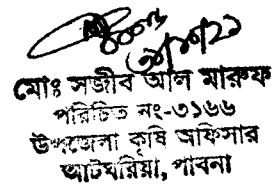 মোঃ সজীব আল মারুফ
পরিচিতি নং-৩১৬৬
উপজেলা কৃষি অফিসার
আটঘরিয়া, পাবনা